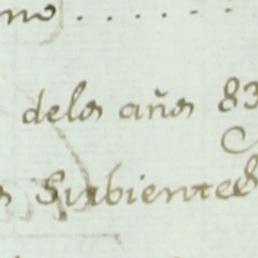 no . . . . . . .
delos años 83
s Sirbientes